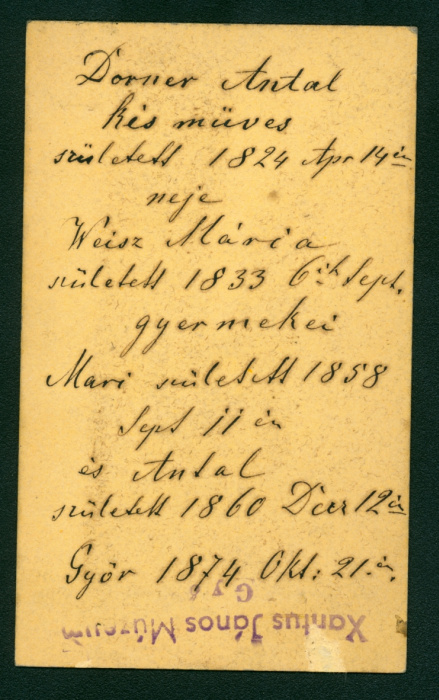 Dorner Antal
kés müves
született 1824 Apr 14 én
neje
Weisz Mária
született 1833 6ik Sept.
gyermekei
Mari született 1858
Sept 11 én
és Antal
született 1860 Decr 12 én
Györ 1874 Okt: 21.én.
Xantus János Múzeum
Győr